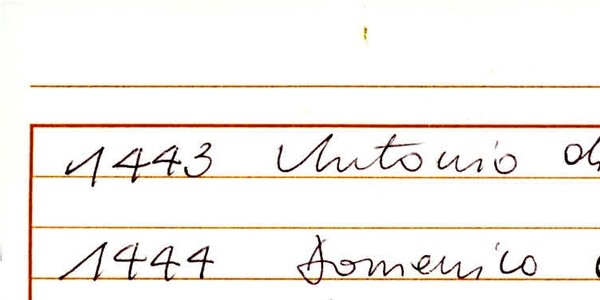 1443 Antonio
1444 Domenico